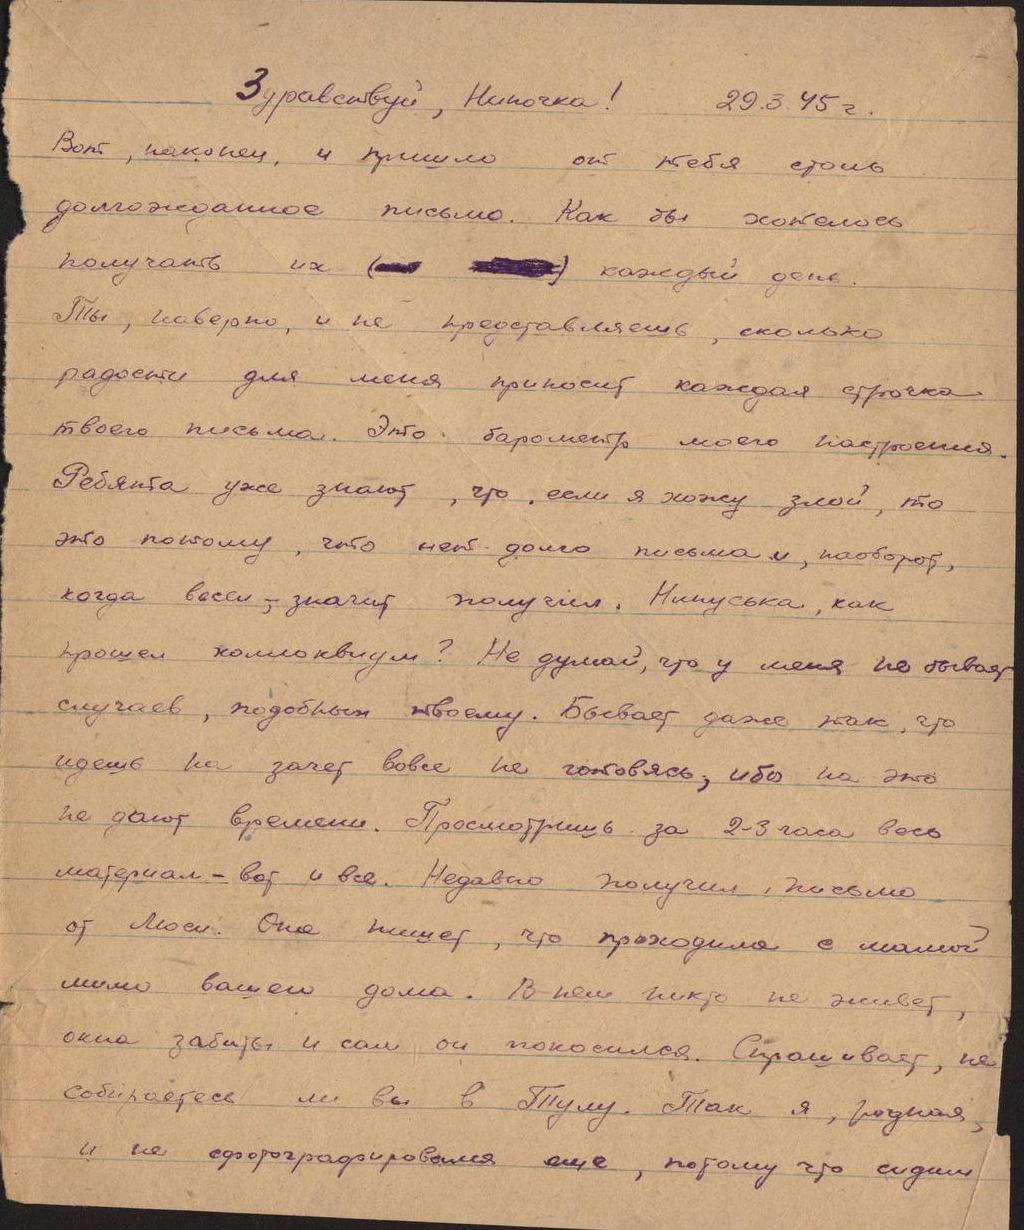 Здравствуй, Ниночка! 29.3.45 г.
Вот, наконец, и пришло от тебя столь
долгожданное письмо. Как бы хотелось
получать их ( ) каждый день.
Ты, наверно, и не представляешь, сколько
радости для меня приносит каждая строчка
твоего письма. Это барометр моего настроения.
Ребята уже знают, что, если я хожу злой, то
это потому, что нет долго письма и, наоборот,
когда весел, – значит получил. Нинуська, как
прошел коллоквиум? Не думай, что у меня не бывает
случаев, подобных твоему. Бывает даже так, что
идешь на зачет вовсе не готовясь, ибо на это
не дают времени. Просмотришь за 2-3 часа весь
материал – вот и все. Недавно получил письмо
от Люси. Она пишет, что проходила с мамой
мимо вашего дома. В нем никто не живет,
окна забиты и сам он покосился. Спрашивает, не
собираетесь ли вы в Тулу. Так я, родная,
и не сфотографировался еще, потому что сидим